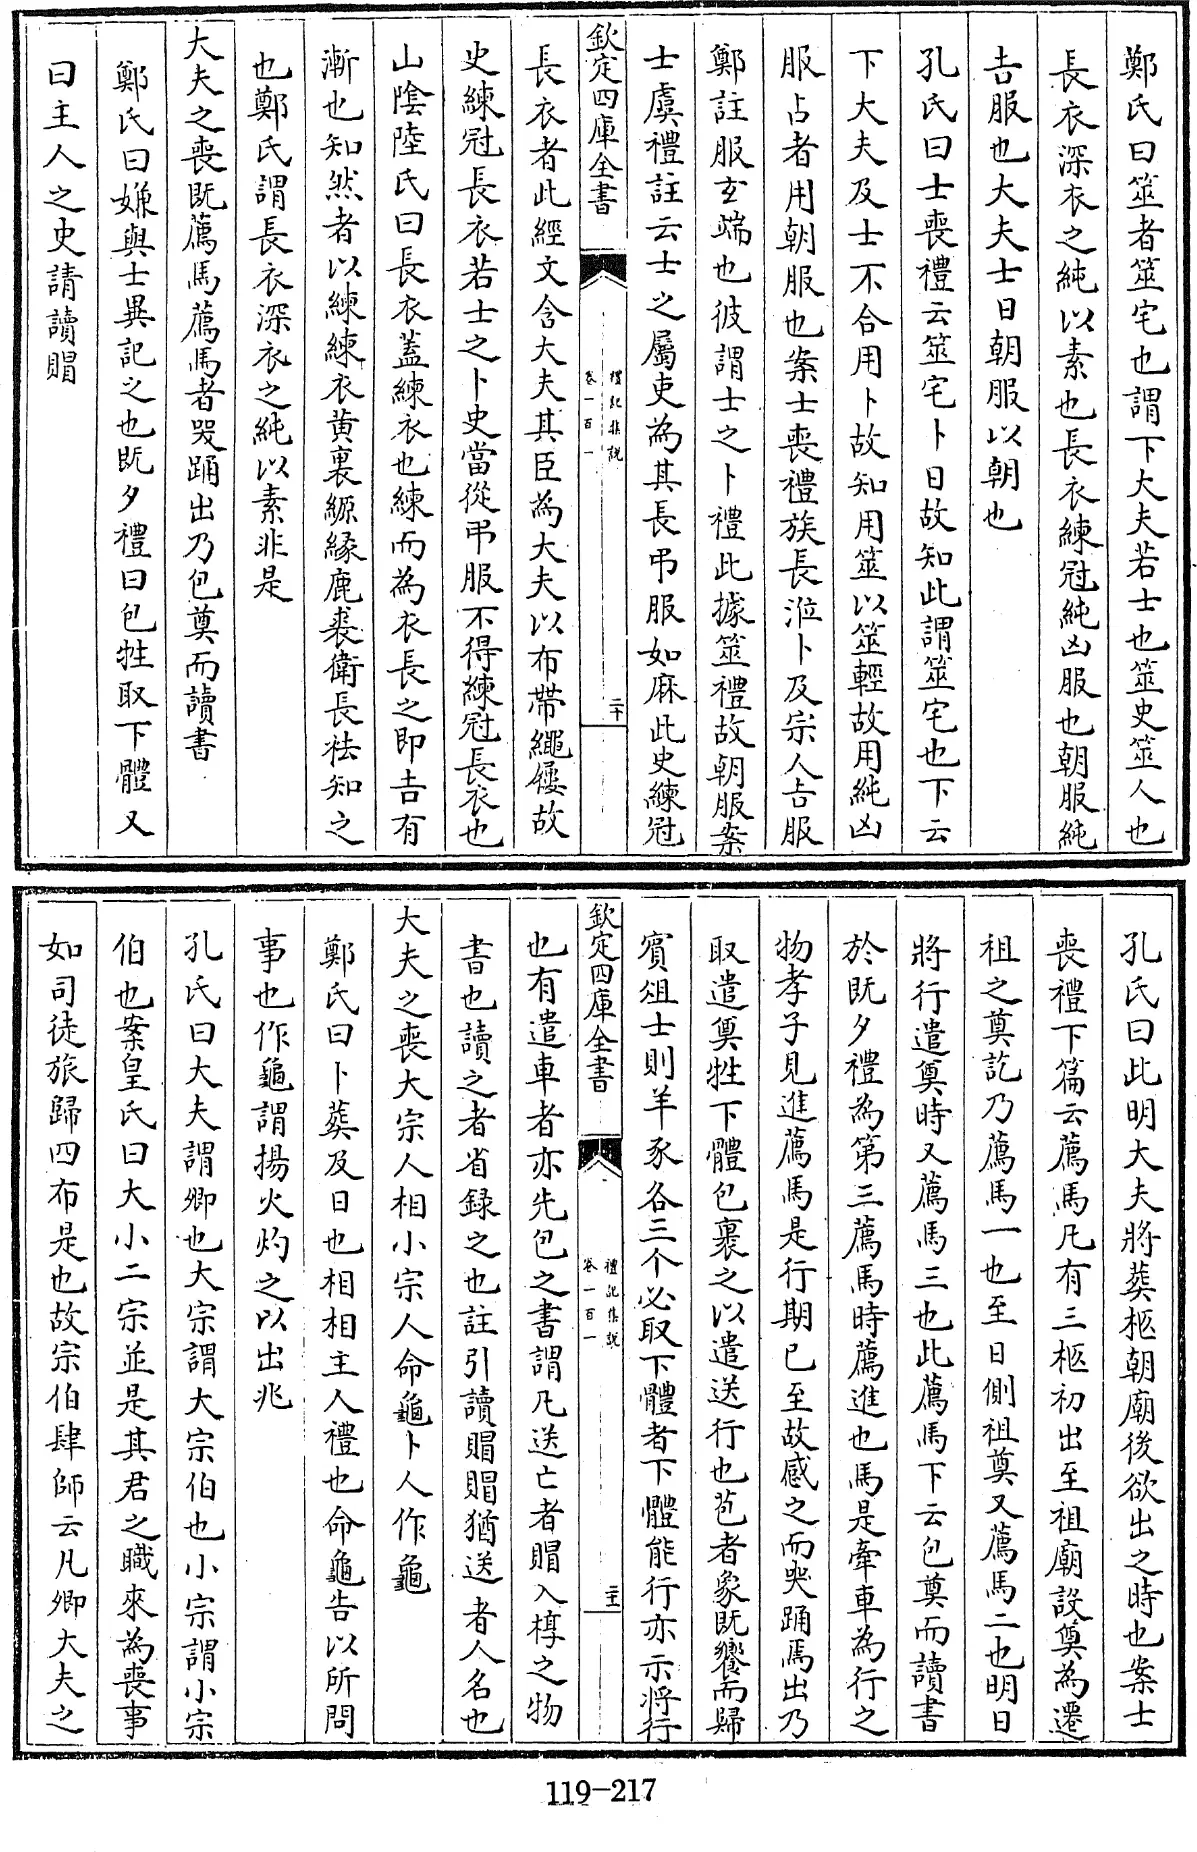 鄭氏曰筮者筮宅也謂下大夫若士也筮史筮人也
長衣深衣之純以素也長衣練冠純凶服也朝服純
吉服也大夫士日朝服以朝也
孔氏曰士喪禮云筮宅卜日故知此謂筮宅也下云
下大夫及士不合用卜故知用筮以筮輕故用純凶
服占者用朝服也案士喪禮族長涖卜及宗人吉服
鄭註服玄端也彼謂士之卜禮此據筮禮故朝服案
士虞禮註云士之屬吏為其長弔服如麻此史練冠
欽定四庫全書
禮記集說
卷一百一
二十
長衣者此經文含大夫其臣為大夫以布帶繩屨故
史練冠長衣若士之卜史當從弔服不得練冠長衣也
山陰陸氏曰長衣蓋練衣也練而為衣長之即吉有
漸也知然者以練練衣黄裏縓緣鹿裘衡長袪知之
也鄭氏謂長衣深衣之純以素非是
大夫之喪既薦馬薦馬者哭踊出乃包奠而讀書
鄭氏曰嫌與士異記之也既夕禮曰包牲取下體又
曰主人之史請讀賵
孔氏曰此明大夫將葬柩朝廟後欲出之時也案士
喪禮下篇云薦馬凡有三柩初出至祖廟設奠為遷
祖之奠訖乃薦馬一也至日側祖奠又薦馬二也明日
將行遣奠時又薦馬三也此薦馬下云包奠而讀書
於既夕禮為第三薦馬時薦進也馬是牽車為行之
物孝子見進薦馬是行期已至故感之而哭踊馬出乃
取遣奠牲下體包裹之以遣送行也苞者象既饗而歸
賓俎士則羊豕各三个必取下體者下體能行亦示將行
欽定四庫全書
禮記集說
卷一百一
二十一
也有遣車者亦先包之書謂凡送亡者賵入椁之物
書也讀之者省録之也註引讀賵賵猶送者人名也
大夫之喪大宗人相小宗人命龜卜人作龜
鄭氏曰卜葬及日也相相主人禮也命龜告以所問
事也作龜謂揚火灼之以出兆
孔氏曰大夫謂卿也大宗謂大宗伯也小宗謂小宗
伯也案皇氏曰大小二宗並是其君之職來為喪事
如司徒旅歸四布是也故宗伯肆師云凡卿大夫之
119-217